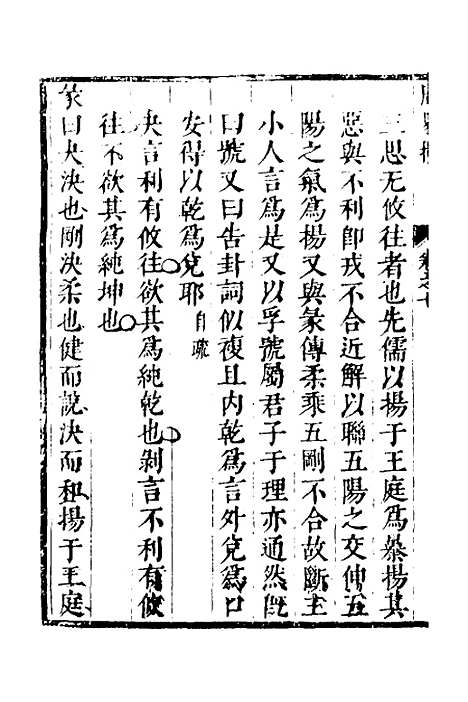 三思无攸往者也先儒以揚于王庭爲暴揚其
惡與不利卽戎不合近解以聯五陽之交伸五
陽之氣爲揚又與彖傳柔乘五剛不合故斷主
小人言爲是又以孚號屬君子于理亦通然旣
曰號又曰告封詞似複且內乾爲言外兌爲口
安得以乾爲兌耶自疏
夬言利有攸往欲其爲純乾也剝言不利有攸
往不欲其爲純坤也
彖曰夬決也剛決柔也健而說決而和揚于王庭